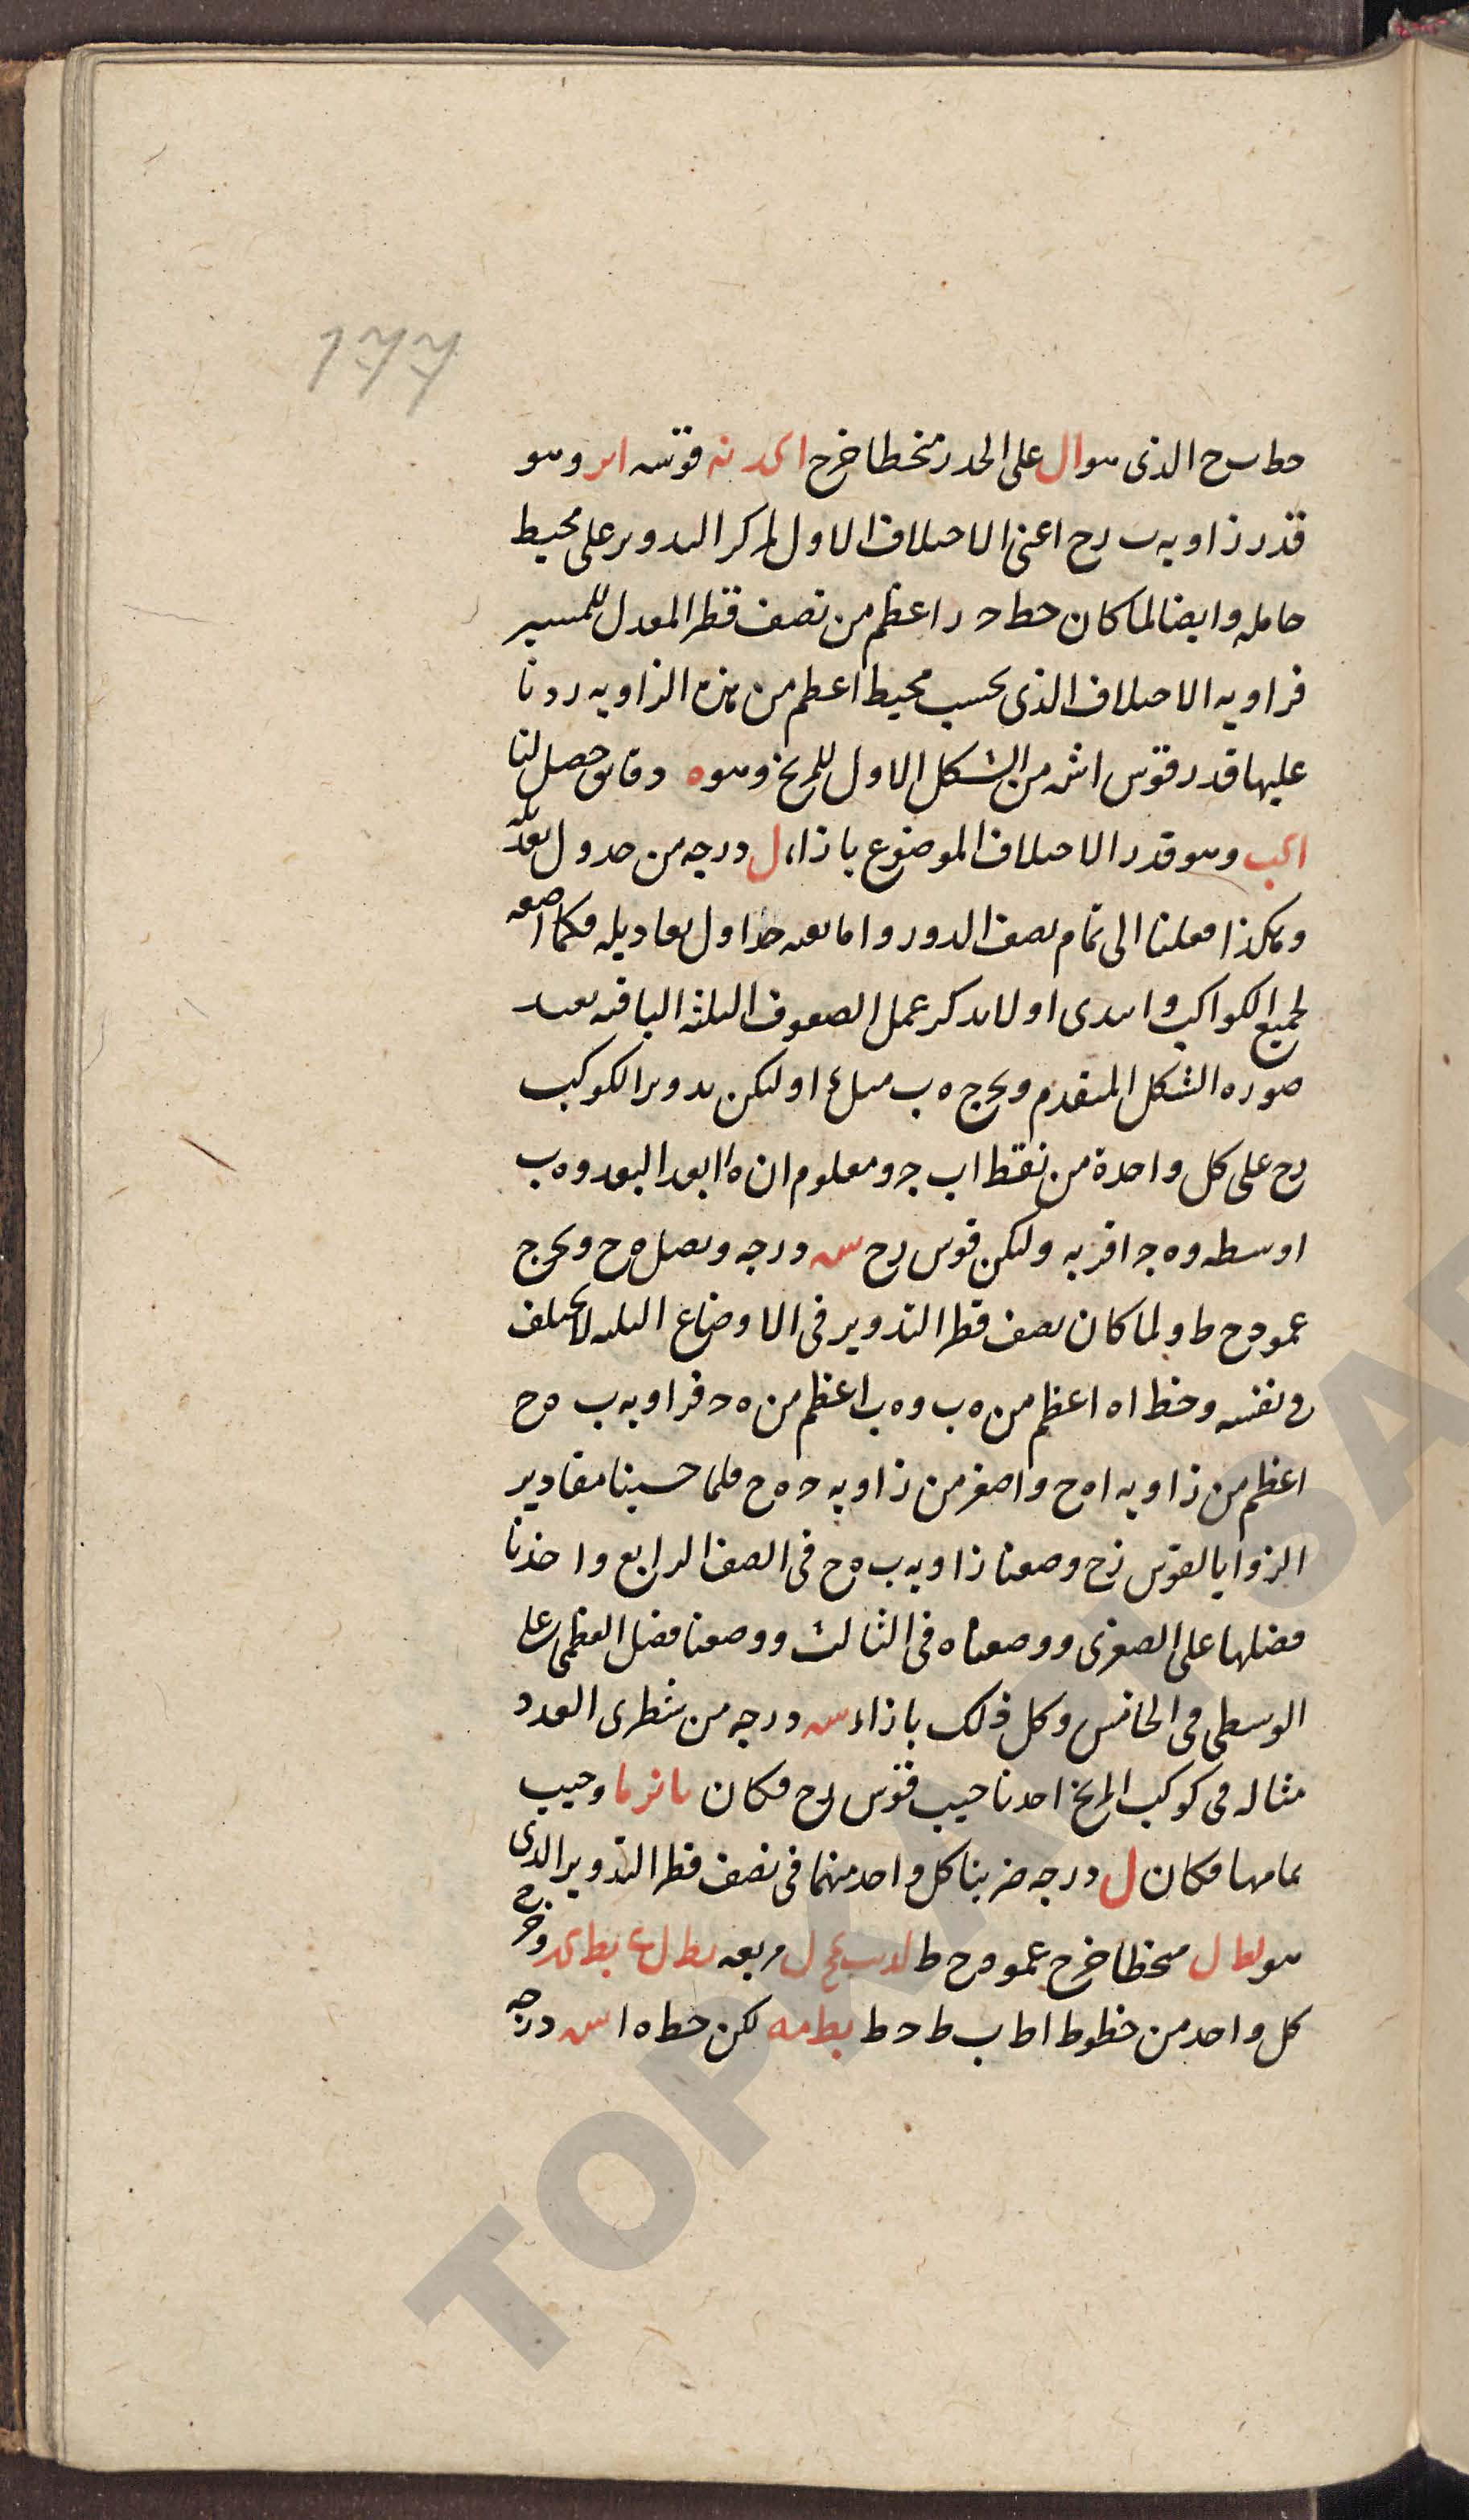 177
خط ب ح الذى هو ا ل على الجذر منحطا خرج ا كد نه قوسه ا ںر وهو
قدر زاوية ب رح اعنى الاختلاف الاول لمركز التدوير على محيط
حامله وايضا لما كان خط ح ر اعظم من نصف قطر المعدل للمسير
فزاوية الاختلاف الذى بحسب محيط اعظم من هذه الزاوية زدنا
عليها قدر قوس اش من الشكل الاول للمريخ وهو ه دقايق حصل لنا
ا كب وهو قدر الاختلاف الموضوع بازاء ل درجه من جدول تعديله
وهكذا فعلنا الى تمام نصف الدور واما بقيه جداول تعاديله فكما اصفه
لجميع الكواكب وابتدى اولا بذكر عمل الصفوف الثلثه الباقيه نعيد
صوره الشكل المتقدم ونخرج ه ب مثلا اولكن تدوير الكوكب
رح على كل واحدة من نقط ا ب ج ومعلوم ان ه ا ابعد البعد و ه ب
اوسطه و ه ج اقربه وليكن قوس رح س درجه ونصل ه ح ونخرج
عمود ح ط ولما كان نصف قطر التدوير فى الاوضاع الثلثه لا يختلف
فى نفسه وخط ا ه اعظم من ه ب و ه ب اعظم من ه ج فزاويه ب ه ح
اعظم من زاويه ا ه ح واصغر من زاويه ج ه ح فلما حسبنا مقادير
الزوايا لقوس زح وضعنا زاويه ب ه ح فى الصف الرابع واخذنا
فضلها على الصغرى ووضعناه فى الثالث ووضعنا فضل العظمى على
الوسطى فى الخامس وكل ذلك بازاء س درجه من شطرى العدد
مثاله فى كوكب المريخ اخذنا جيب قوس رح فكان نا نز ما وجيب
تمامها فكان ل درجه ضربنا كل واحد منهما فى نصف قطر التدوير الذى
هو لط ل منحطا خرج عمود ح ط مربعه وخرج
كل واحد من خطوط ا ط ب ط ج ط يط مه لكن خط ه ا س درجه
TOPKAPI SAR